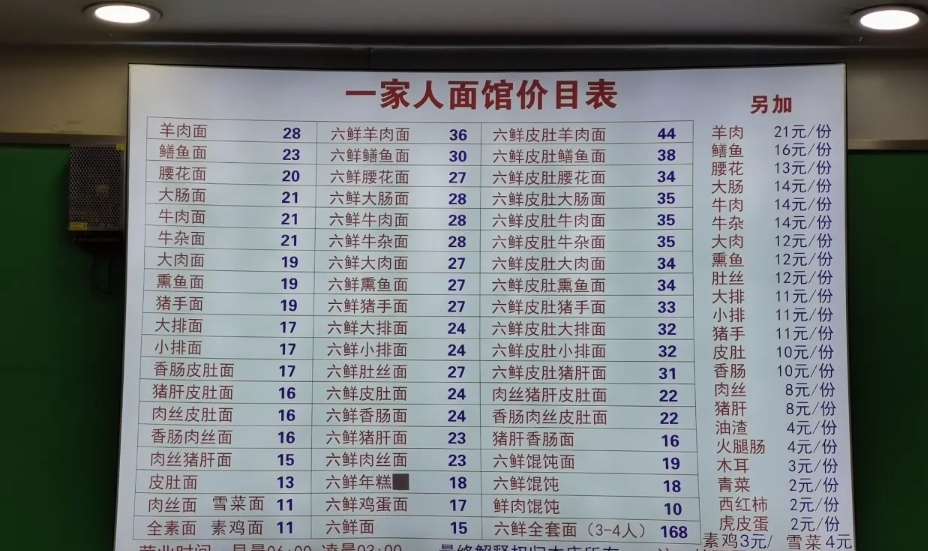 一家人面馆价目表
羊肉面 28 六鲜羊肉面 36 六鲜皮肚羊肉面 44
鳝鱼面 23 六鲜鳝鱼面 30 六鲜皮肚鳝鱼面 38
腰花面 20 六鲜腰花面 27 六鲜皮肚腰花面 34
大肠面 21 六鲜大肠面 28 六鲜皮肚大肠面 35
牛肉面 21 六鲜牛肉面 28 六鲜皮肚牛肉面 35
牛杂面 21 六鲜牛杂面 28 六鲜皮肚牛杂面 35
大肉面 19 六鲜大肉面 27 六鲜皮肚大肉面 34
熏鱼面 19 六鲜熏鱼面 27 六鲜皮肚熏鱼面 34
猪手面 19 六鲜猪手面 27 六鲜皮肚猪手面 33
大排面 17 六鲜大排面 24 六鲜皮肚大排面 32
小排面 17 六鲜小排面 24 六鲜皮肚小排面 32
香肠皮肚面 17 六鲜肚丝面 27 六鲜皮肚猪肝面 31
猪肝皮肚面 16 六鲜皮肚面 24 肉丝猪肝皮肚面 22
肉丝皮肚面 16 六鲜香肠面 24 香肠肉丝皮肚面 22
香肠肉丝面 16 六鲜猪肝面 23 猪肝香肠面 16
肉丝猪肝面 15 六鲜肉丝面 23 六鲜馄饨面 19
皮肚面 13 六鲜年糕 18 六鲜馄饨 18
肉丝面 雪菜面 11 六鲜鸡蛋面 17 鲜肉馄饨 10
全素面 素鸡面 11 六鲜面 15 六鲜全套面（3-4人） 168
另加
羊肉 21元/份
鳝鱼 16元/份
腰花 13元/份
大肠 14元/份
牛肉 14元/份
牛杂 14元/份
大肉 12元/份
熏鱼 12元/份
肚丝 12元/份
大排 11元/份
小排 11元/份
猪手 11元/份
皮肚 10元/份
香肠 10元/份
肉丝 8元/份
猪肝 8元/份
油渣 4元/份
火腿肠 4元/份
木耳 3元/份
青菜 2元/份
西红柿 2元/份
虎皮蛋 2元/份
素鸡3元/ 雪菜4元
营业时间 早晨06:00 凌晨03:00 最终解释权归本店所有